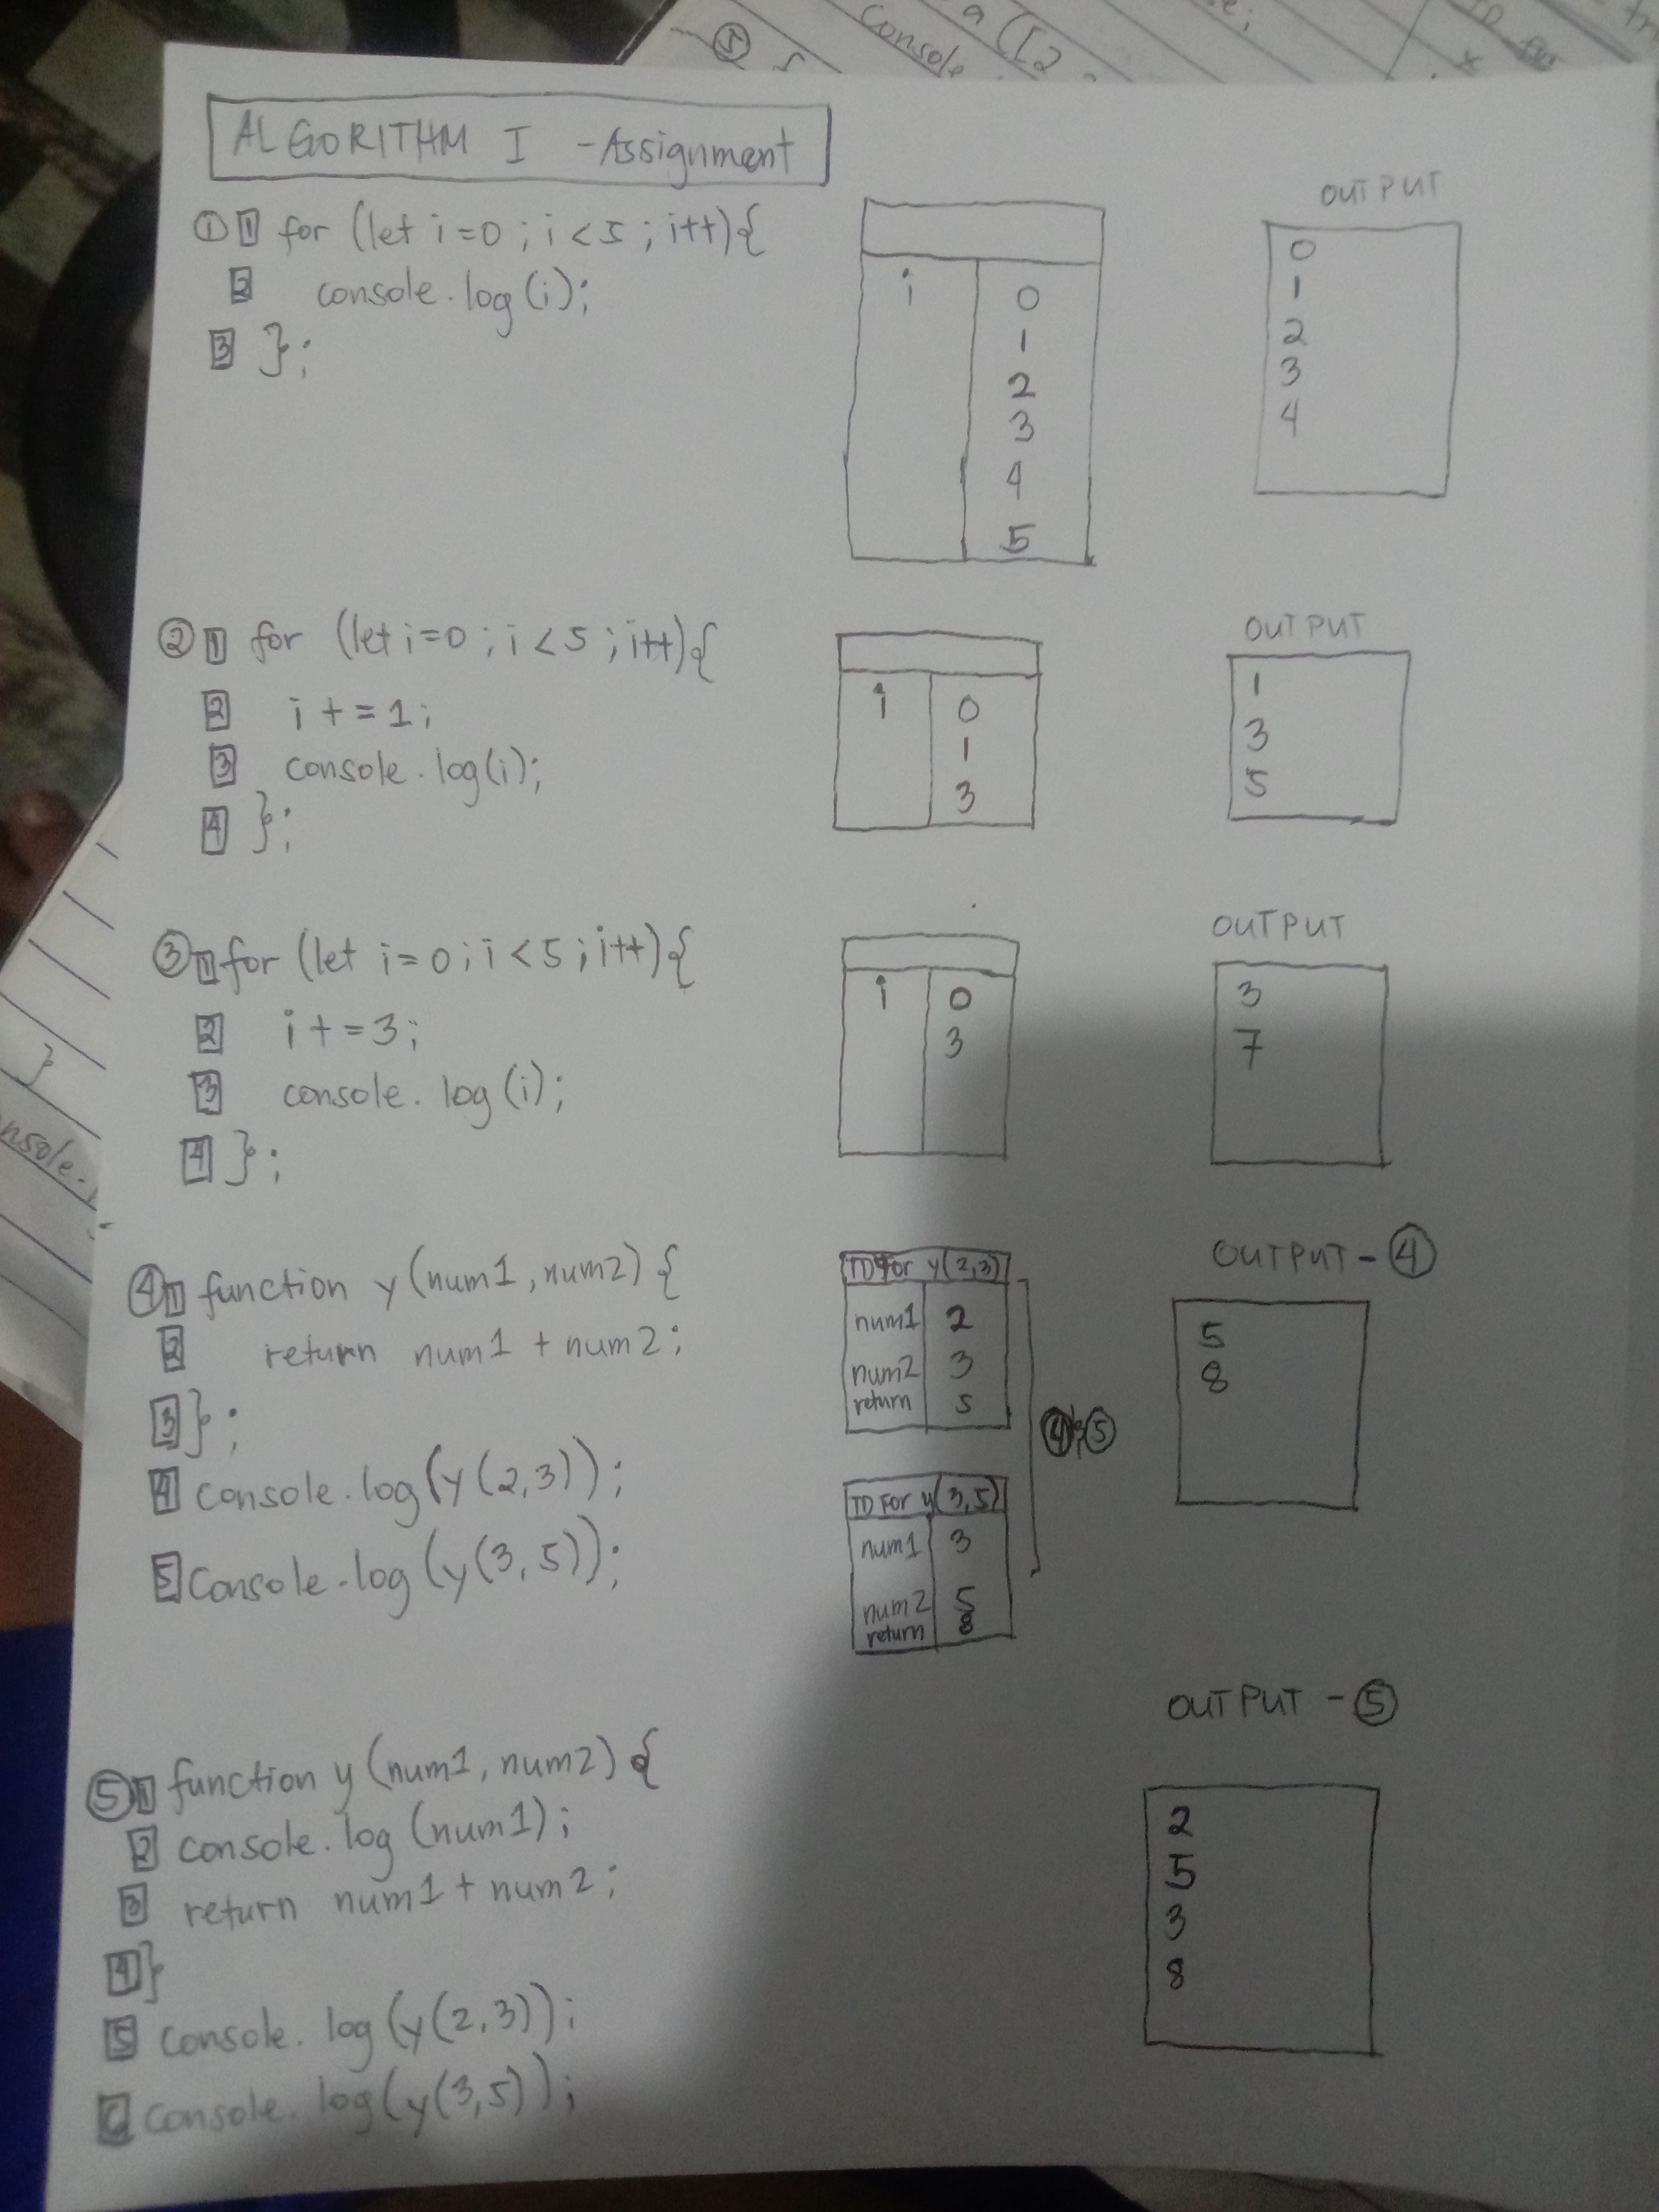 ⑤
console
a ([2
ALGORITHM I - Assignment
① 1 for (let i=0; i<5; i++){
2 console.log(i);
3 };
i 0
1
2
3
4
5
OUTPUT
0
1
2
3
4
② 1 for (let i=0; i<5; i++){
2 i+=1;
3 console.log(i);
4 };
i 0
1
3
OUTPUT
1
3
5
③ 1 for (let i=0; i<5; i++){
2 i+=3;
3 console.log(i);
4 };
i 0
3
OUTPUT
3
7
}
nsole.
④ 1 function y(num1, num2) {
2 return num1 + num2;
3 };
4 Console.log(y(2,3));
5 Console.log(y(3,5));
TD For y(2,3)
num1 2
num2 3
return 5
TD For y(3,5)
num1 3
num2 5
return 8
④ ⑤
OUTPUT - ④
5
8
⑤ 1 function y(num1, num2) {
2 console.log(num1);
3 return num1 + num2;
4 }
5 console.log(y(2,3));
6 console.log(y(3,5));
OUTPUT - ⑤
2
5
3
8